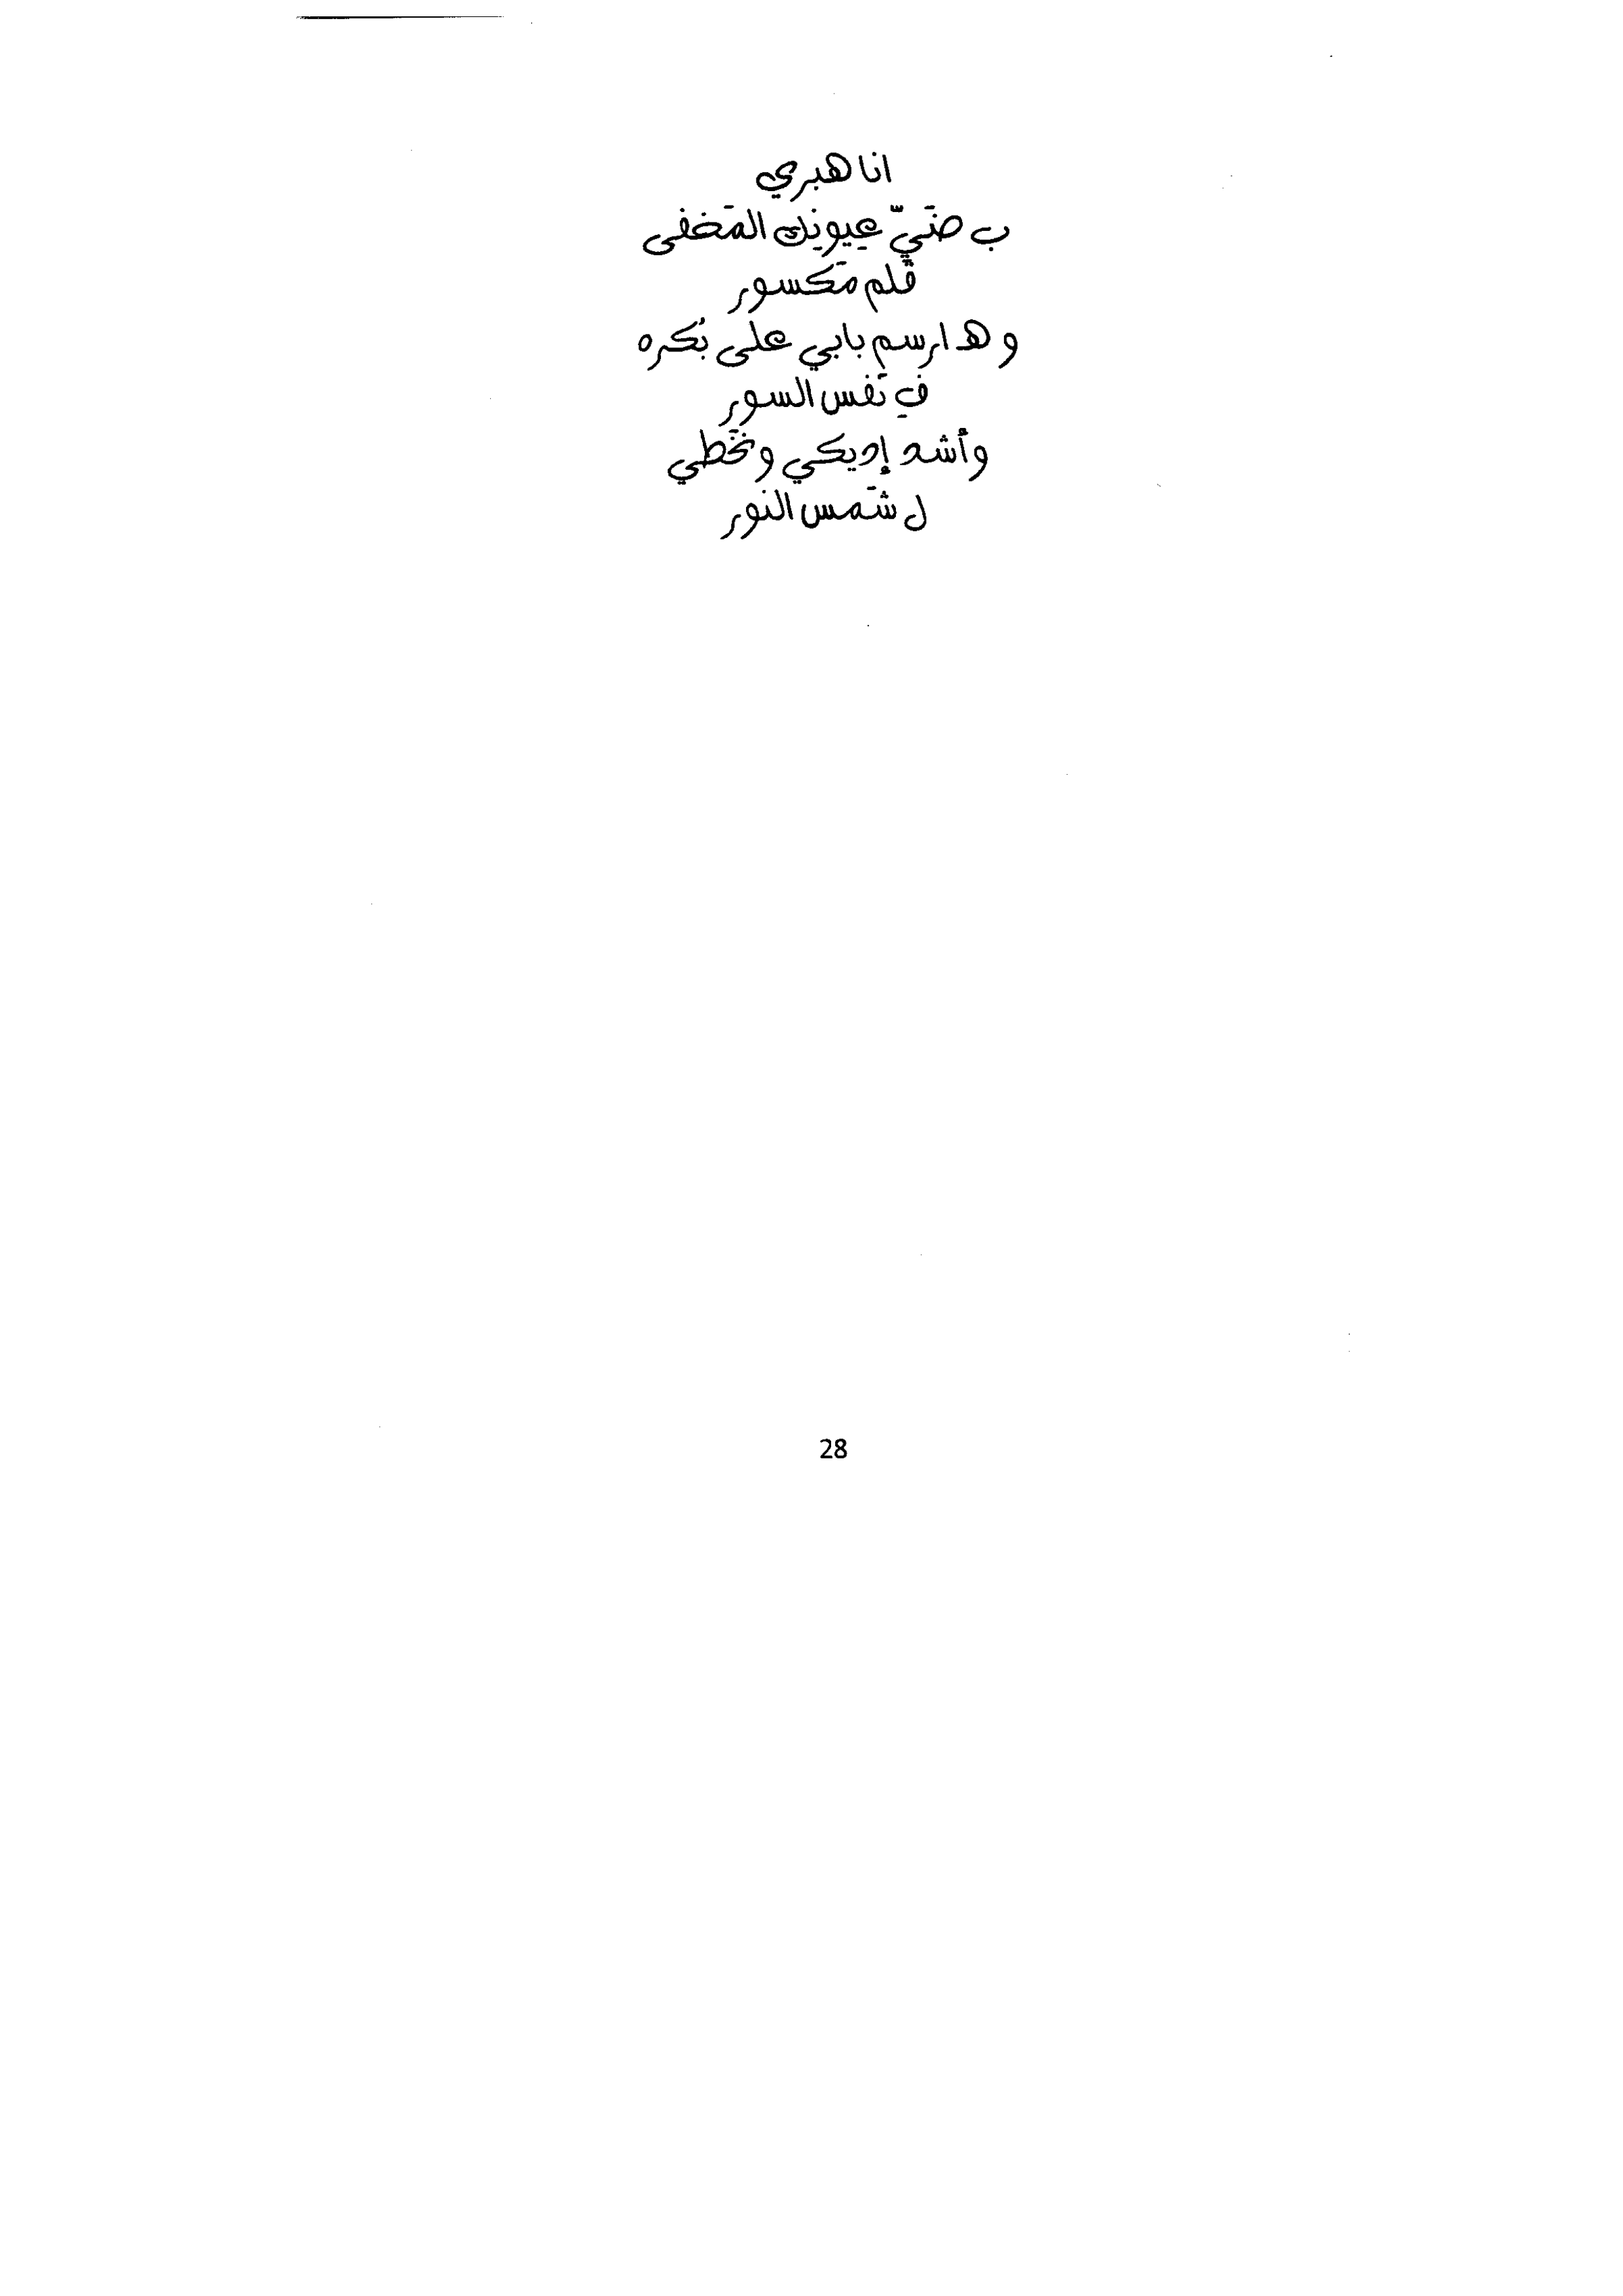 انا هبري
ب ضَيّ عِيونِك المَخفى
قَلم مَكسور
و هـ ارسم بابي على بُكره
فِ نَفس السور
وأشد إديكي ونخَطي
ل شَمس النور
28